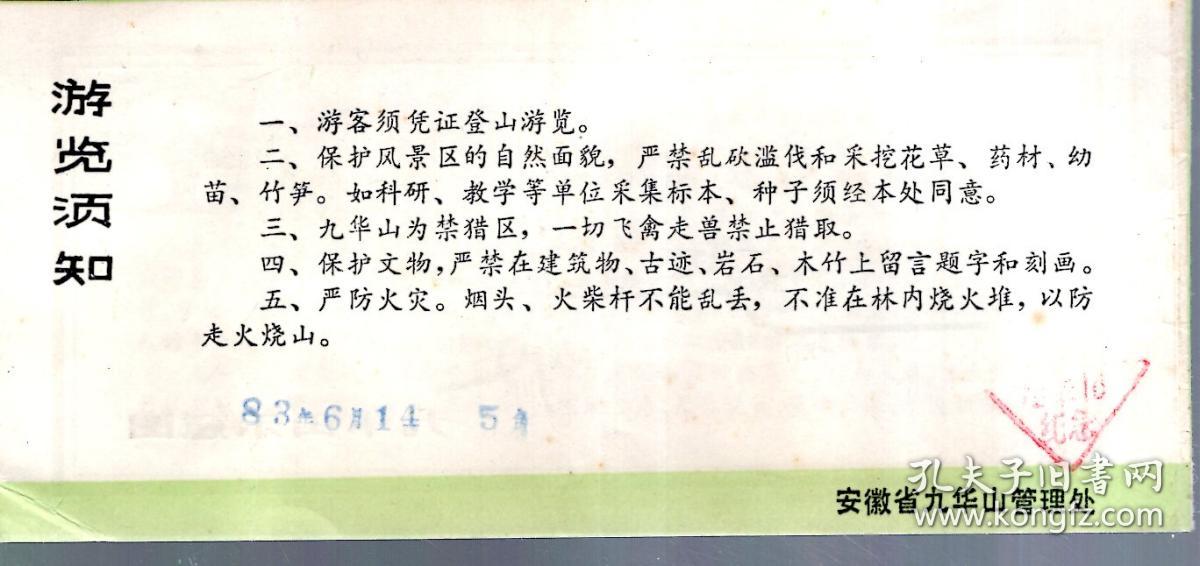 游览须知
一、游客须凭证登山游览。
二、保护风景区的自然面貌，严禁乱砍滥伐和采挖花草、药材、幼
苗、竹笋。如科研、教学等单位采集标本、种子须经本处同意。
三、九华山为禁猎区，一切飞禽走兽禁止猎取。
四、保护文物，严禁在建筑物、古迹、岩石、木竹上留言题字和刻画。
五、严防火灾。烟头、火柴杆不能乱丢，不准在林内烧火堆，以防
走火烧山。
83年6月14 5角
纪念
安徽省九华山管理处
孔夫子旧书网
www.kongfz.com